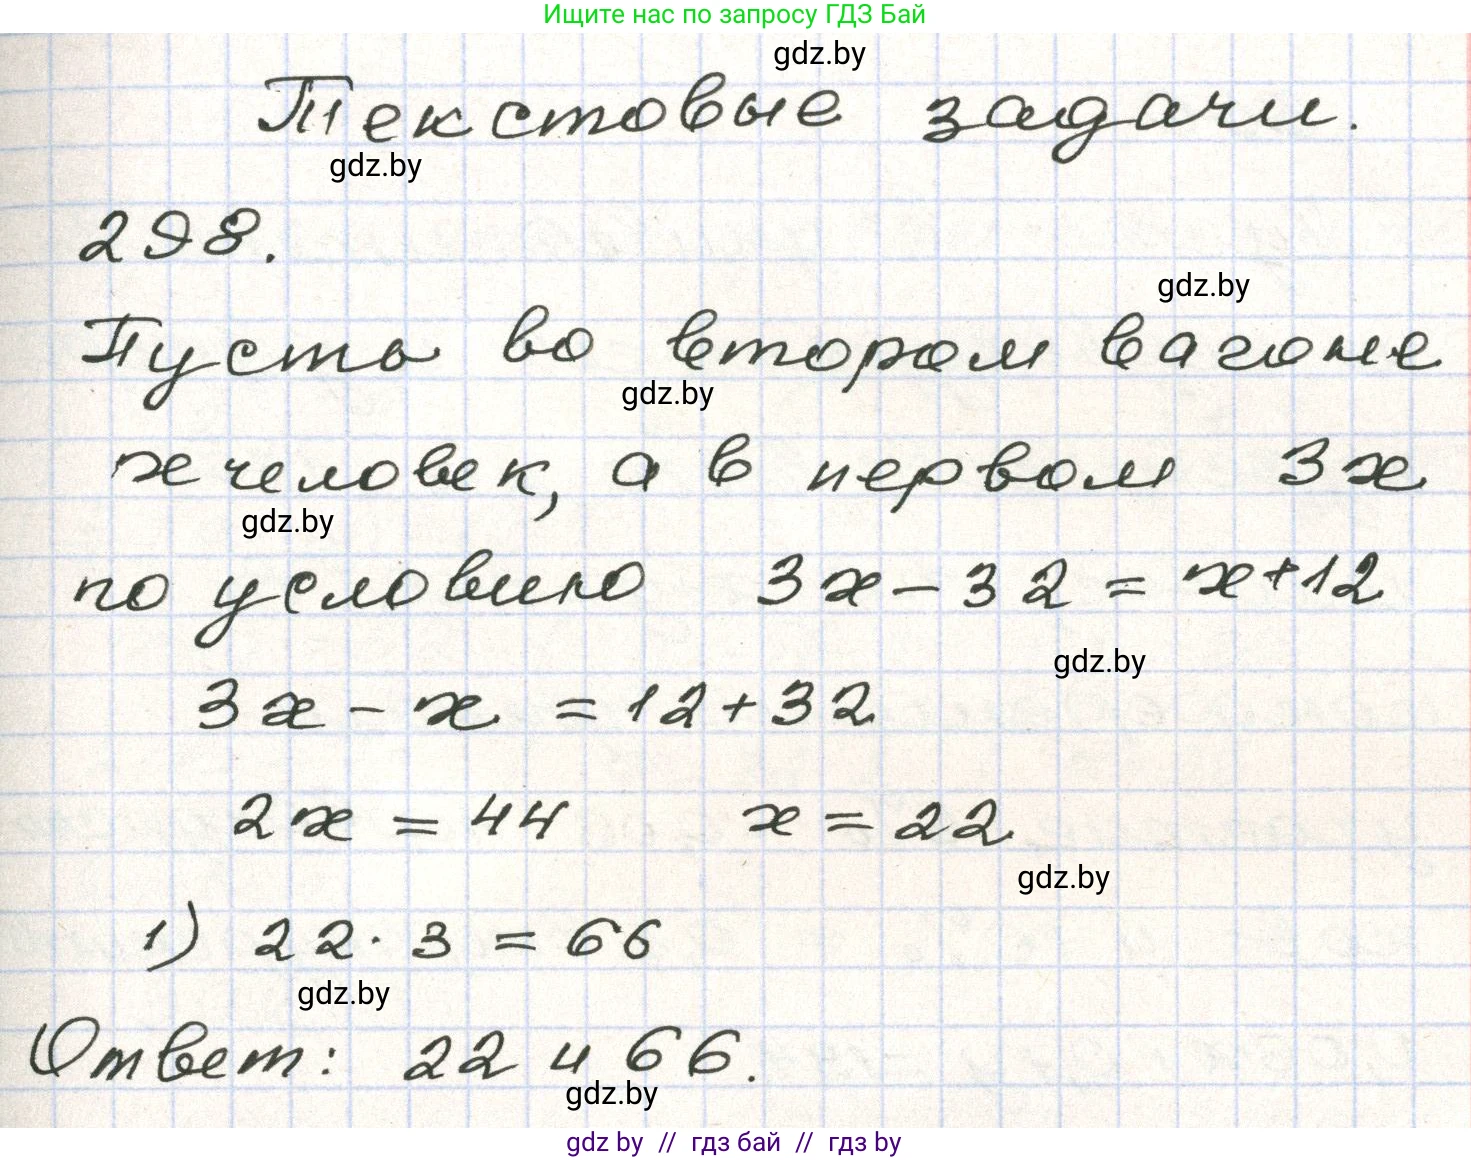 Ищите нас по запросу ГДЗ Бай
gdz.by
Текстовые задачи.
gdz.by
298.
gdz.by
Пусть во втором вагоне
gdz.by
x человек, а в первом 3x
gdz.by
по условию 3x - 32 = x + 12
gdz.by
3x - x = 12 + 32
2x = 44 x = 22
gdz.by
1) 22 · 3 = 66
gdz.by
Ответ: 22 и 66.
gdz.by
gdz by // гдз бай // гдз by